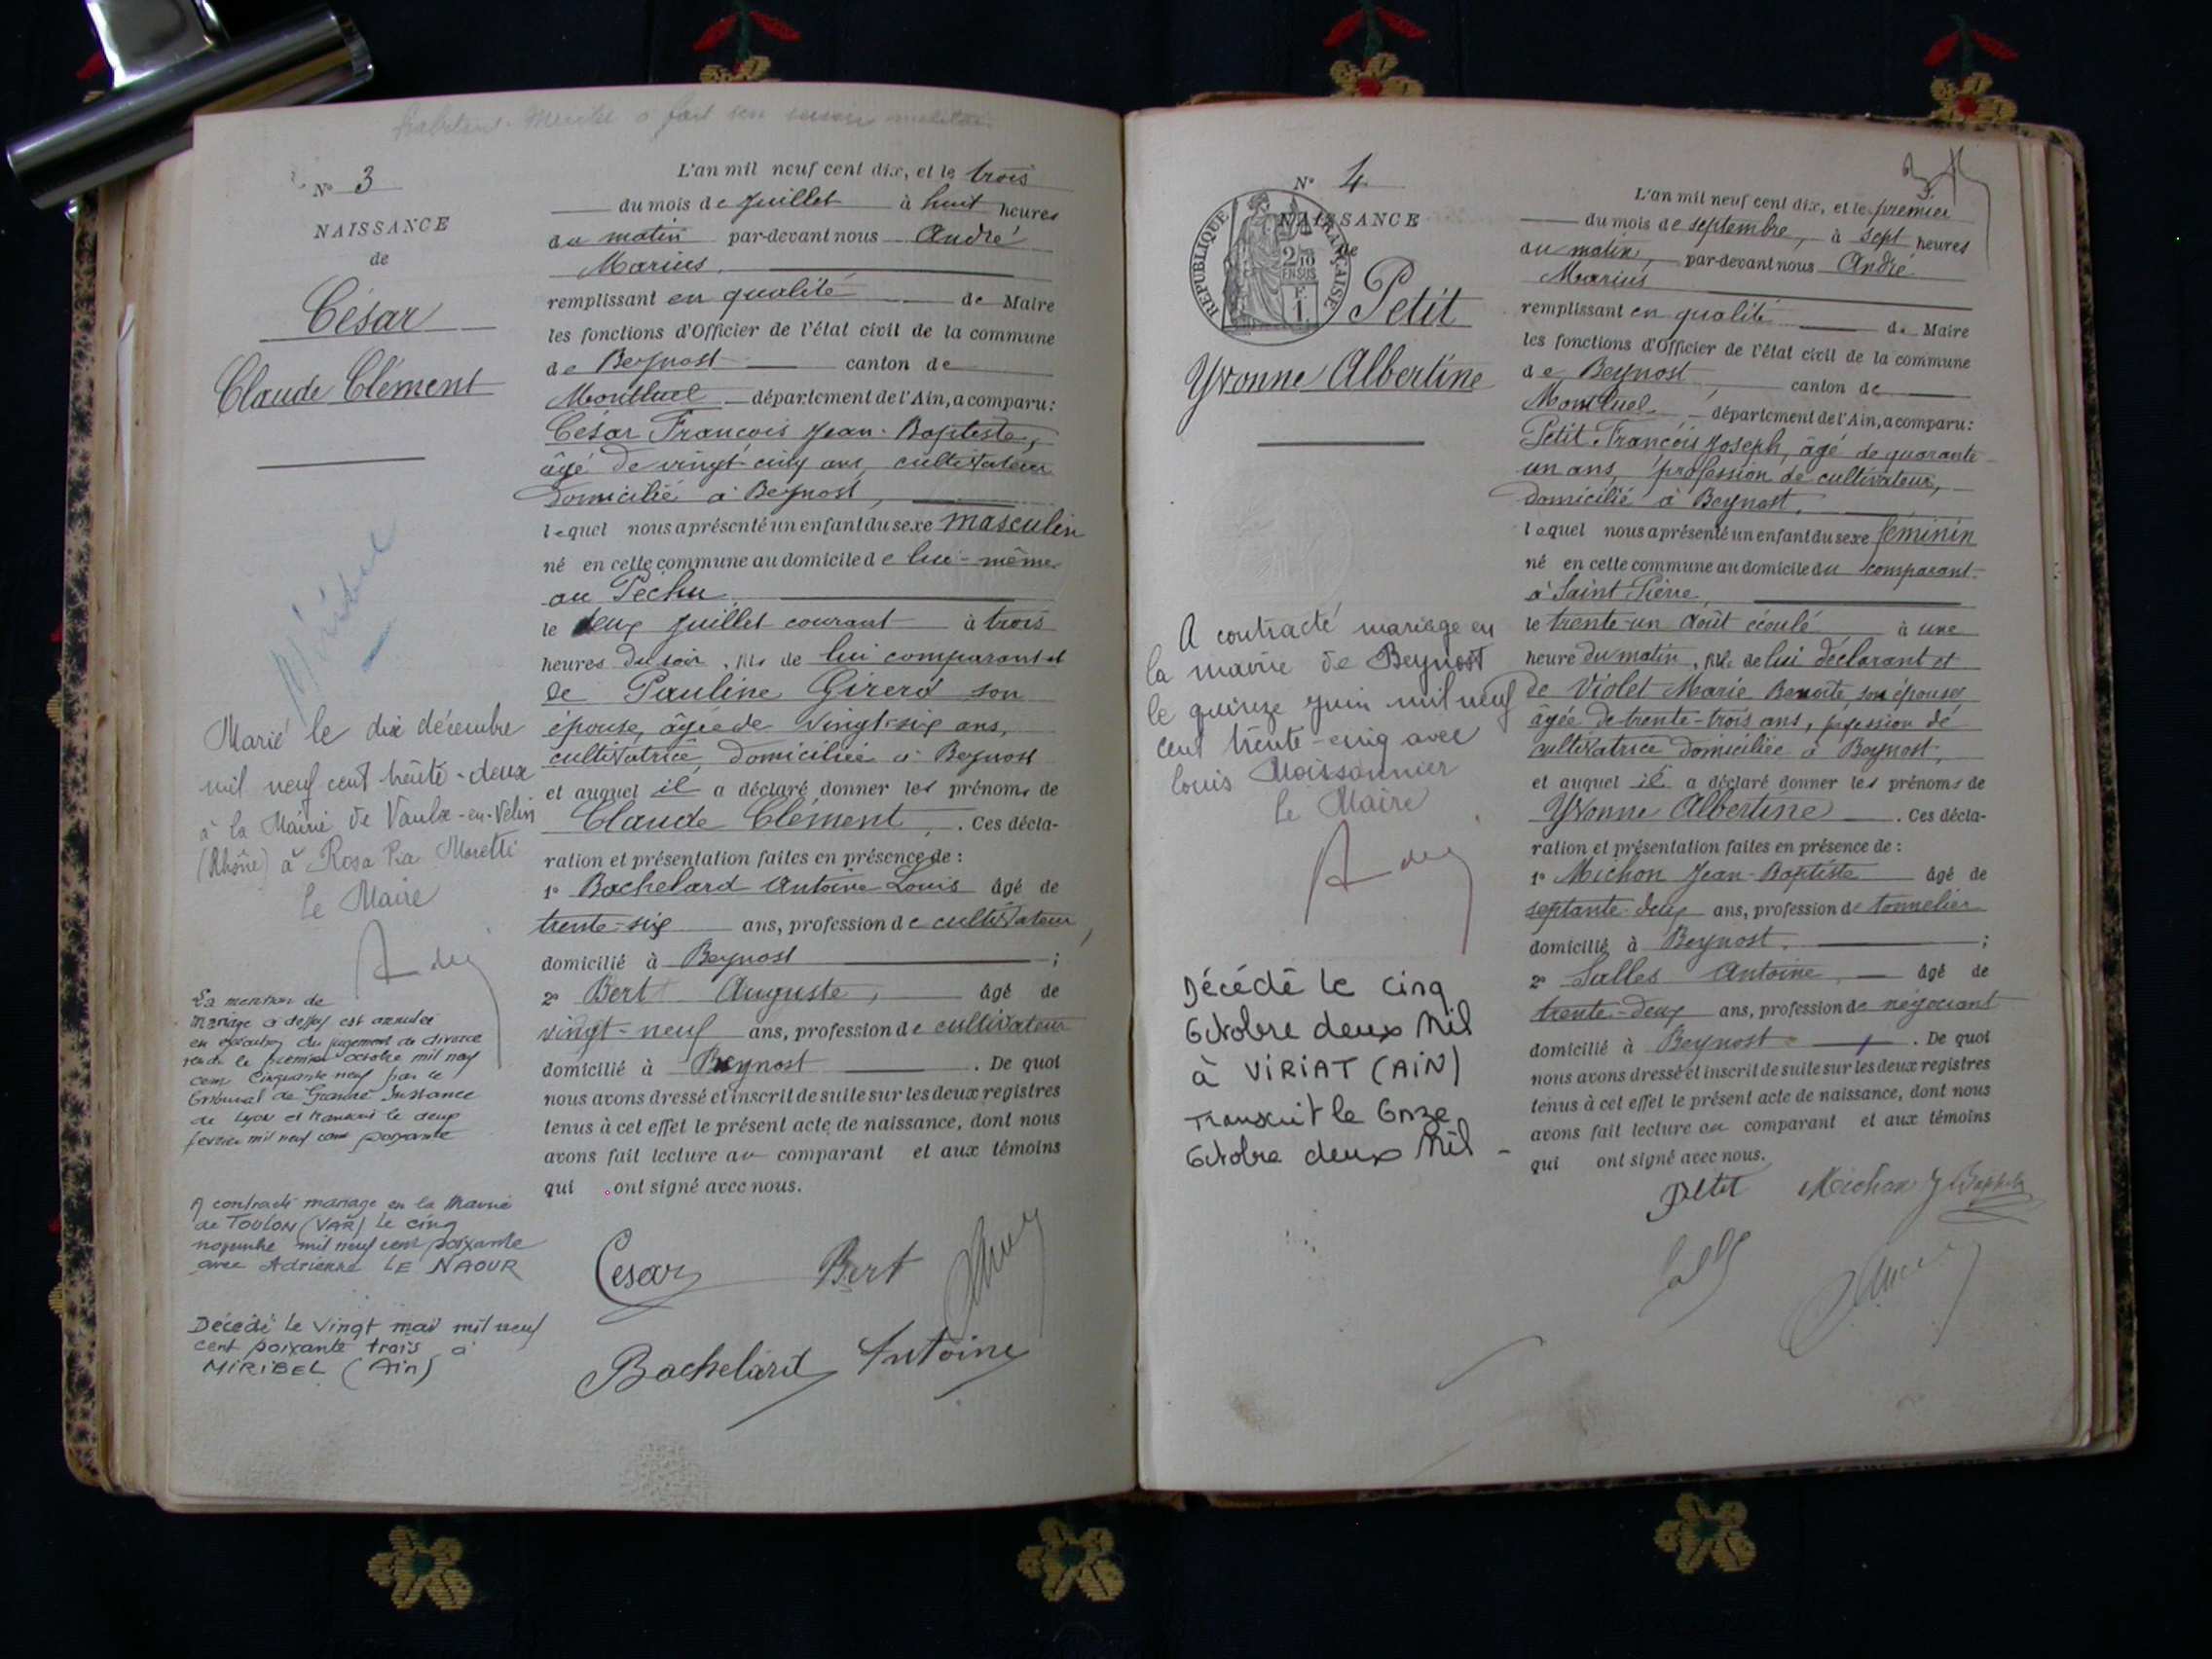 a fait son service militaire
N° 3
NAISSANCE
de
César
Claude Clément
L'an mil neuf cent dix, et le trois
du mois de Juillet à huit heures
du matin par-devant nous André
Marius,
remplissant en qualité de Maire
les fonctions d'Officier de l'état civil de la commune
de Beynost canton de
Montluel département de l'Ain, a comparu :
César François Jean-Baptiste,
âgé de vingt cinq ans, cultivateur
domicilié à Beynost,
lequel nous a présenté un enfant du sexe masculin
né en cette commune au domicile de lui-même
au Péchu,
le deux Juillet courant à trois
heures du soir, fils de lui comparant et
de Pauline Girerd son
épouse, âgée de vingt-six ans,
cultivatrice, domiciliée à Beynost
et auquel il a déclaré donner les prénoms de
Claude Clément, . Ces décla-
ration et présentation faites en présence de :
1° Bachelard Antoine Louis âgé de
trente-six ans, profession de cultivateur,
domicilié à Beynost ;
2° Bert Auguste, âgé de
vingt-neuf ans, profession de cultivateur
domicilié à Beynost . De quoi
nous avons dressé et inscrit de suite sur les deux registres
tenus à cet effet le présent acte de naissance, dont nous
avons fait lecture au comparant et aux témoins
qui ont signé avec nous.
Cesar Bert
Bachelard Antoine
Marié le dix décembre
mil neuf cent trente-deux
à la Mairie de Vaulx-en-Velin
(Rhône) à Rosa Pia Moretti
Le Maire
La mention de
mariage ci dessus est annulée
en exécution du jugement de divorce
rendu le premier octobre mil neuf
cent cinquante neuf par le
tribunal de Grande Instance
de Lyon et transcrit le deux
février mil neuf cent soixante
A contracté mariage en la Mairie
de TOULON (VAR) le cinq
novembre mil neuf cent soixante
avec Adrienne LE NAOUR
Décédé le vingt mai mil neuf
cent soixante trois à
MIRIBEL (Ain)
N° 4
NAISSANCE
de
REPUBLIQUE FRANÇAISE
2/10
EN SUS
F.
1.
Petit
Yvonne Albertine
L'an mil neuf cent dix, et le premier
du mois de septembre, à sept heures
du matin, par-devant nous André
Marius
remplissant en qualité de Maire
les fonctions d'Officier de l'état civil de la commune
de Beynost, canton de
Montluel département de l'Ain, a comparu :
Petit François Joseph, âgé de quarante-
un ans, profession de cultivateur,
domicilié à Beynost,
lequel nous a présenté un enfant du sexe féminin
né en cette commune au domicile du comparant
à Saint Pierre,
le trente-un Août écoulé à une
heure du matin, fille de lui déclarant et
de Violet Marie Benoîte, son épouse,
âgée de trente-trois ans, profession de
cultivatrice domiciliée à Beynost,
et auquel il a déclaré donner les prénoms de
Yvonne Albertine . Ces décla-
ration et présentation faites en présence de :
1° Michon Jean-Baptiste âgé de
septante-deux ans, profession de tonnelier
domicilié à Beynost, ;
2° Salles Antoine, âgé de
trente-deux ans, profession de négociant
domicilié à Beynost . De quoi
nous avons dressé et inscrit de suite sur les deux registres
tenus à cet effet le présent acte de naissance, dont nous
avons fait lecture au comparant et aux témoins
qui ont signé avec nous.
Petit Michon J Baptiste
A contracté mariage en
la mairie de Beynost
le quinze juin mil neuf
cent trente-cinq avec
Louis Moissonnier
Le Maire
Décédé le cinq
Octobre deux Mil
à VIRIAT (AIN)
Transcrit le Onze
Octobre deux Mil -